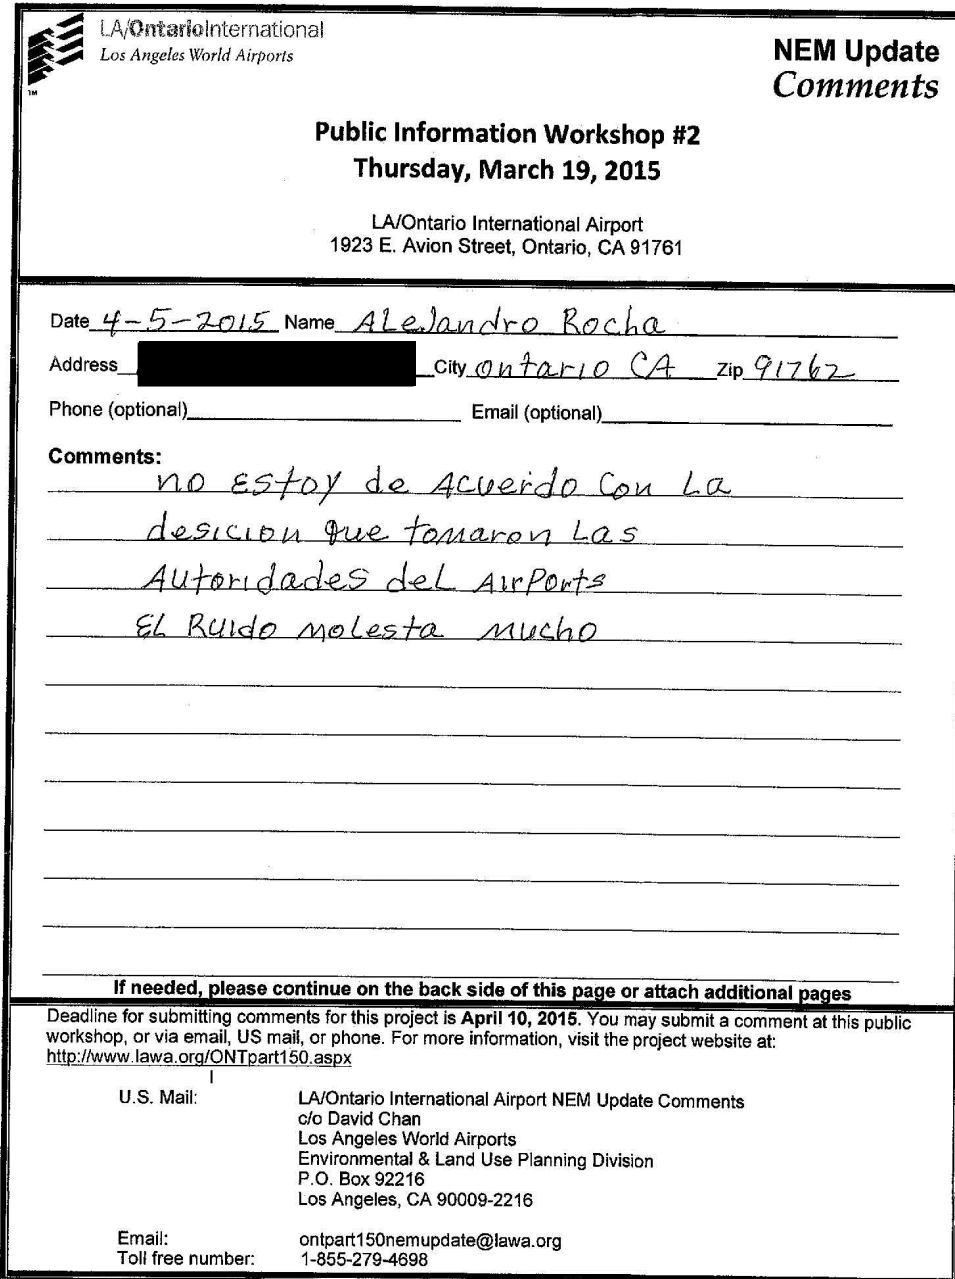 LA/OntarioInternational
Los Angeles World Airports
TM
NEM Update
Comments
Public Information Workshop #2
Thursday, March 19, 2015
LA/Ontario International Airport
1923 E. Avion Street, Ontario, CA 91761
Date 4-5-2015 Name ALeJandro Rocha
Address City ontario CA Zip 91762
Phone (optional) Email (optional)
Comments:
no EStoy de Acuerdo Con La
desicion que tomaron Las
AUtoridades deL AirPorts
EL RUido moLesta mucho
If needed, please continue on the back side of this page or attach additional pages
Deadline for submitting comments for this project is April 10, 2015. You may submit a comment at this public
workshop, or via email, US mail, or phone. For more information, visit the project website at:
http://www.lawa.org/ONTpart150.aspx
U.S. Mail: LA/Ontario International Airport NEM Update Comments
c/o David Chan
Los Angeles World Airports
Environmental & Land Use Planning Division
P.O. Box 92216
Los Angeles, CA 90009-2216
Email: ontpart150nemupdate@lawa.org
Toll free number: 1-855-279-4698